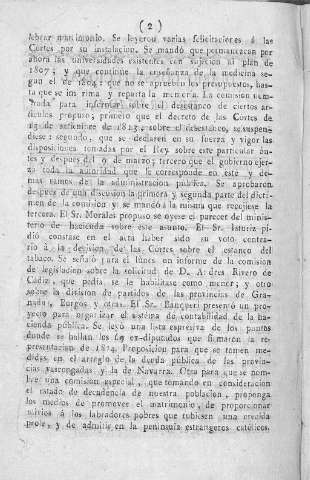 ( 2 )
lebrar matrimonio. Se leyeron varias felicitaciones á las
Cortes por su instalacion. Se mandó que permanezcan por
ahora las universidades existentes con sujecion al plan de
1807; y que continúe la enseñanza de la medicina segun
el de 1804: que no se aprueben los presupuestos, hasta
que se imprima y reparta la memoria. La comision
para informar sobre el desestanco de ciertos artículos
propuso; primero que el decreto de las Córtes de
13 de setiembre de 1813, sobre el desestanco, se suspendiese:
segundo, que se declaren en su fuerza y vigor las
disposiciones tomadas por el Rey sobre este particular antes
y despues del 9 de marzo; tercero que el gobierno ejerza
toda la autoridad que le corresponde en este y demas
ramos de la administracion pública. Se aprobaron
despues de una discusion la primera y segunda parte del dictámen
de la comision y se mandó á la misma que recojiese la
tercera. El Sr. Morales propuso se oyese el parecer del ministerio
de hacienda sobre este asunto. El Sr. Isturiz pidió
constase en el acta haber sido su voto contrario
á la decision de las Córtes sobre el estanco del
tabaco. Se señaló para el lunes un informe de la comision
de legislacion sobre la solicitud de D. Andres Rivero de
Cadiz, que pedia se le habilitase como menor; y otro
sobre la division de partidos de las provincias de Granada,
Burgos y otras. El Sr. Banqueri presentó un proyecto
para organizar el sistema de contabilidad de la hacienda
pública. Se leyó una lista espresiva de los puntos
donde se hallan los 69 ex-diputados que firmaron la representacion
de 1814. Proposicion para que se tomen medidas,
en el arreglo de la deuda pública de las provincias
vascongadas y la de Navarra. Otra para que se nombre
una comision especial, que tomando en consideracion
el estado de decadencia de nuestra poblacion, proponga
los medios de promover el matrimonio, de proporcionar
alivios á los labradores pobres que tubiesen una crecida
prole, y de admitir en la península estrangeros católicos.